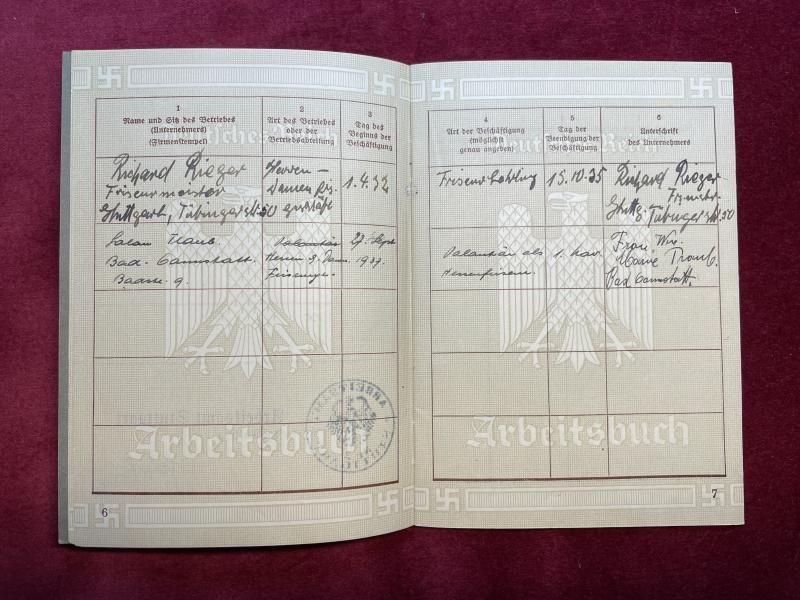 1
Name und Sitz des Betriebes
(Unternehmers)
(Firmenstempel)
2
Art des Betriebes
oder der
Betriebsabteilung
3
Tag des
Beginns der
Beschäftigung
Richard Rieger
Friseurmeister
Stuttgart, Tübingerstr. 50
Herren-
Damen
geschäft
1.4.32
Salon
Bad-Cannstatt.
9.
Volontär
Herren
27. Sept
1937
Arbeitsbuch
6
4
Art der Beschäftigung
(möglichst
genau angeben)
5
Tag der
Beendigung der
Beschäftigung
6
Unterschrift
des Unternehmers
Friseur Lehrling
15.10.35
Richard Rieger
Stuttg. Tübingerstr. 50
Volontär als
1. Nov.
Frau
Bad Cannstatt.
Arbeitsbuch
7